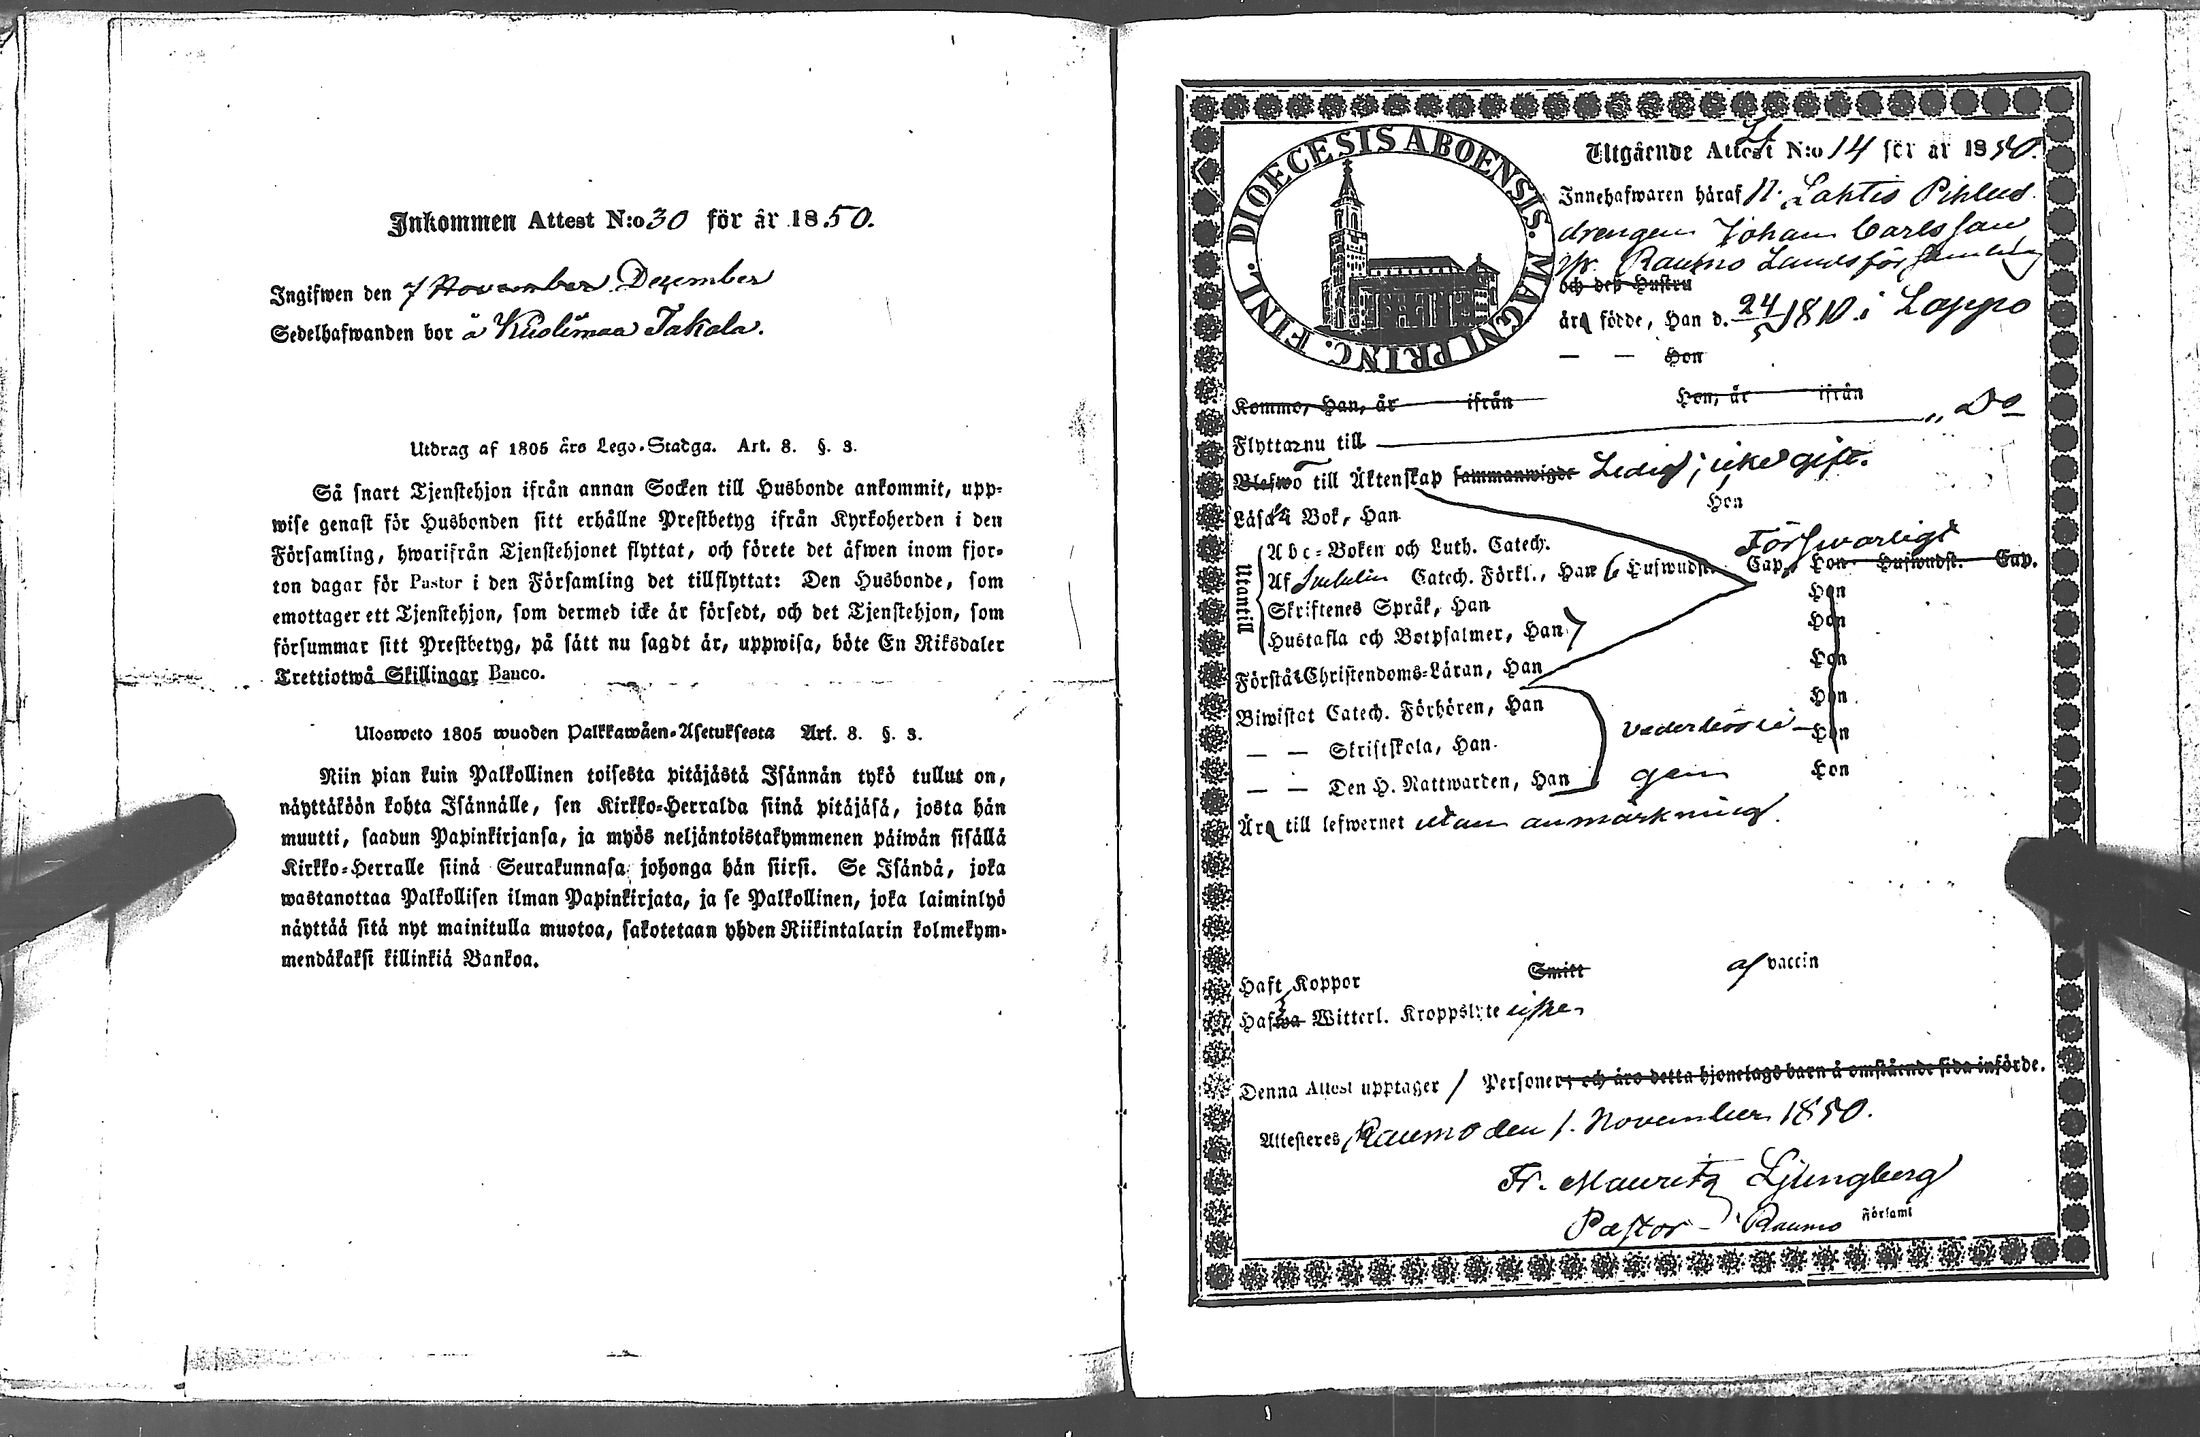 Inkommen Attest N:o 30 för år 1850.
Ingifwen den 7 November Dezember
Sedelhafwanden bor å Kuolimaa Jakala.
Utdrag af 1805 års Lego-Stadga. Art. 8. §. 3.
Så snart Tjenstehjon ifrån annan Socken till Husbonde ankommit, upp-
wise genast för Husbonden sitt erhållne Prestbetyg ifrån Kyrkoherden i den
Församling, hwarifrån Tjenstehjonet flyttat, och förete det äfwen inom fjor-
ton dagar för Pastor i den Församling det tillflyttat: Den Husbonde, som
emottager ett Tjenstehjon, som dermed icke är försedt, och det Tjenstehjon, som
försummar sitt Prestbetyg, på sätt nu sagdt är, uppwisa, böte En Riksdaler
Trettiotwå Skillingar Banco.
Ulosweto 1805 wuoden Palkkawäen-Asetuksesta Art. 8. §. 3.
Niin pian kuin Palkollinen toisesta pitäjästä Isännän tykö tullut on,
näyttäköön kohta Isännälle, sen Kirkko-Herralda siinä pitäjäsä, josta hän
muutti, saadun Papinkirjansa, ja myös neljäntoistakymmenen päiwän sisällä
Kirkko-Herralle siinä Seurakunnasa johonga hän siirsi. Se Isändä, joka
wastanottaa Palkollisen ilman Papinkirjata, ja se Palkollinen, joka laiminlyö
näyttää sitä nyt mainitulla muotoa, sakotetaan yhden Riikintalarin kolmekym-
mendäkaksi killinkiä Bankoa.
DIOECESIS ABOENSIS. MAGNI PRINC. FINL.
Utgående Attest N:o 14 för år 1850.
Innehafwaren häraf N. Lahtis Pihlus
drengen Johan Carlsson
fr. Raumo Landsförsamling
och deß Hustru
äro födde, Han d. 24/5 1810 i Lappo
— — Hon
Kommo, Han, år ifrån Hon, år ifrån
Flyttar nu till „ Do
Blefwo till Äktenskap sammanwigde Ledig; icke gift.
Läsa i Bok, Han Hon
Utantill
Abc-Boken och Luth. Catech. Försvarligt
Af Catech. Förkl., Han 6 Hufwudst. Cap. Hon Hufwudst. Cap.
Skriftenes Språk, Han Hon
Hustafla och Botpsalmer, Han Hon
Förstår Christendoms-Läran, Han Hon
Biwistat Catech. Förhören, Han Hon
— — Skriftskola, Han vederbörli- Hon
— — Den H. Nattwarden, Han gen Hon
Äro till lefwernet utan anmärkning.
Haft Koppor Smitt af vaccin
Hafwa Witterl. Kroppslyte icke
Denna Attest upptager 1 Personer, och äro detta hjonelags barn å omstående sida införde.
Attesteres Raumo den 1. November 1850.
Fr. Mauritz Ljungberg
Pastor i Raumo Församl